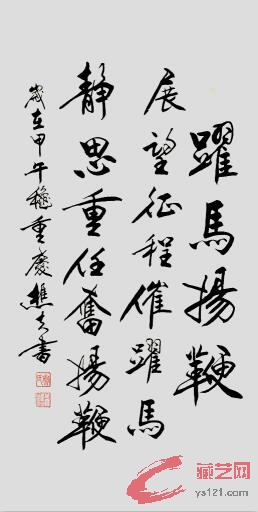 躍馬揚鞭
展望征程催躍馬
靜思重任奮揚鞭
歲在甲午穐重慶樵夫書
藏艺网
ys121.com